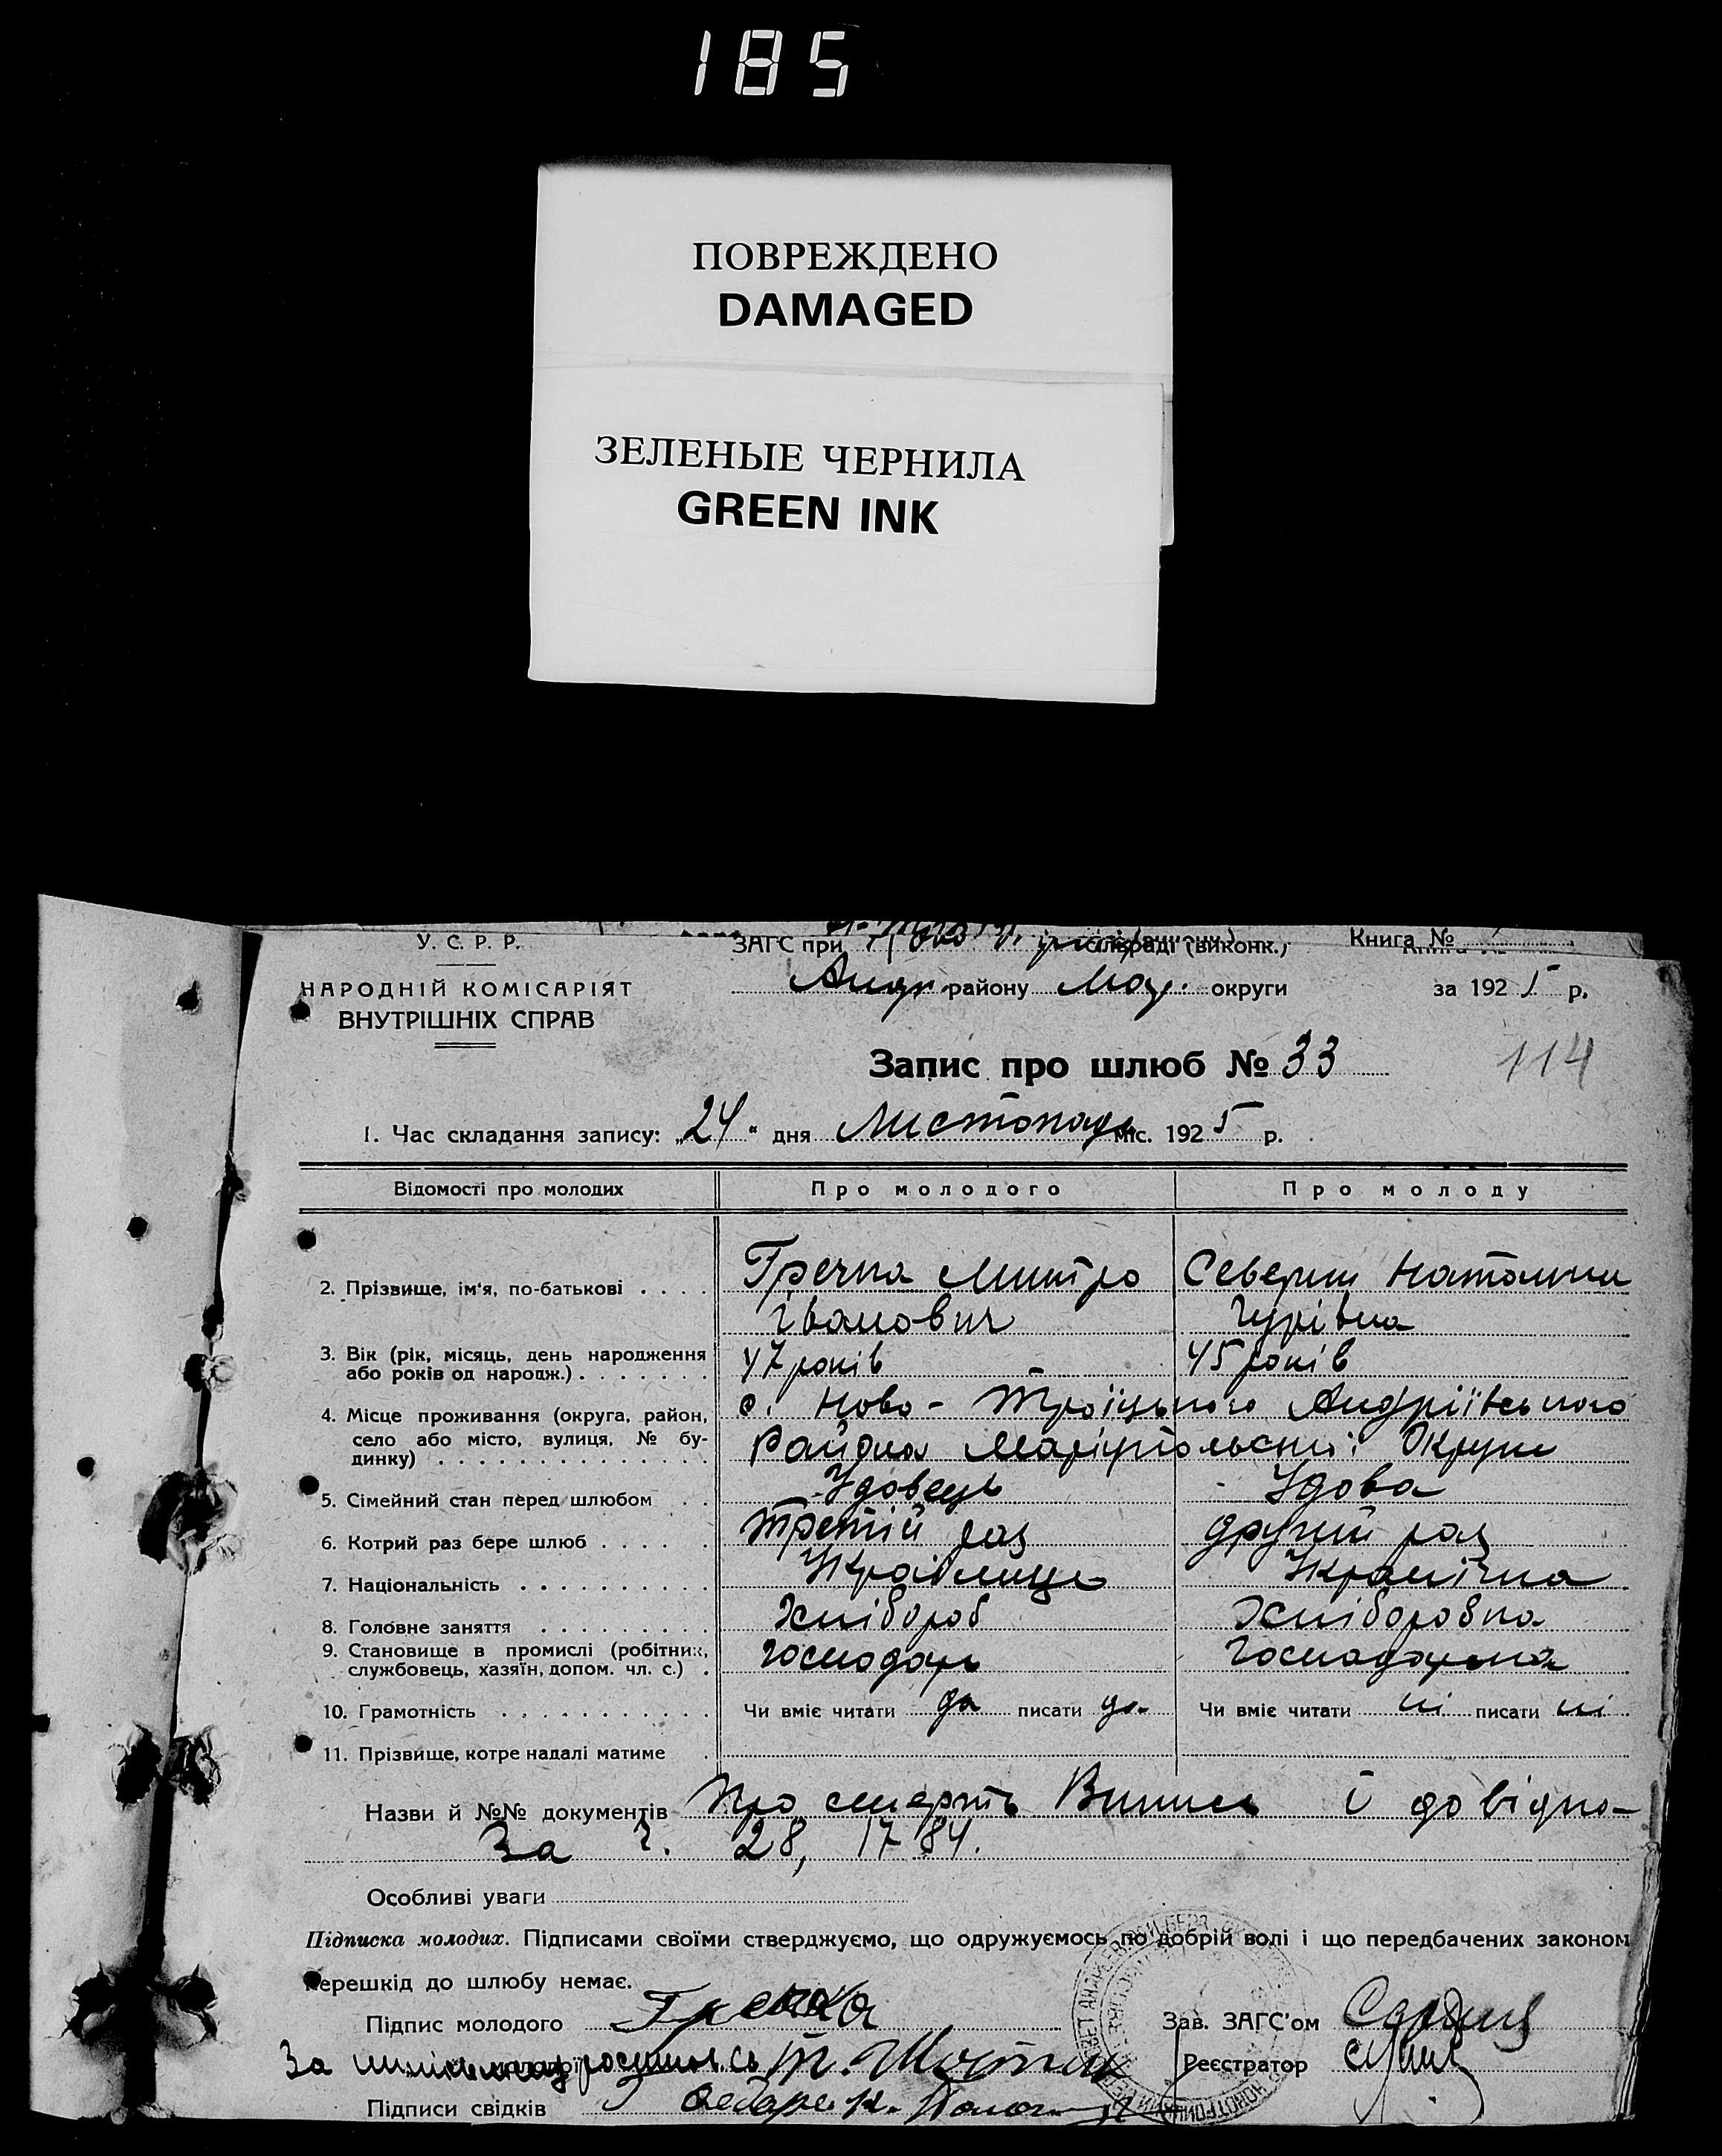 185
ПОВРЕЖДЕНО
DAMAGED
ЗЕЛЕНЫЕ ЧЕРНИЛА
GREEN INK
У. С. Р. Р.
ЗАГС при сільраді (виконк.) Книга №
НАРОДНІЙ КОМІСАРІЯТ
Андр. району Мар. округи за 1925 р.
ВНУТРІШНІХ СПРАВ
Запис про шлюб № 33
114
1. Час складання запису: „24“ дня Листопада міс. 1925 р.
Відомості про молодих Про молодого Про молоду
2. Прізвище, ім'я, по-батькові . . . . Гречка Митро Северин Наталки
Іванович Гурівна
3. Вік (рік, місяць, день народження 47 років 45 років
або років од народж.) . . . . . . .
4. Місце проживання (округа, район, с. Ново-Троїцького Андріївського
село або місто, вулиця, № бу- Района Маріупольської Округи
динку) . . . . . . . . . . . . . .
5. Сімейний стан перед шлюбом . . Удовець Удова
6. Котрий раз бере шлюб . . . . . третій раз другий раз
7. Національність . . . . . . . . . . Українець Українка
8. Головне заняття . . . . . . . . . Хлібороб Хліборобка
9. Становище в промислі (робітник, господарь господарька
службовець, хазяїн, допом. чл. с.) .
10. Грамотність . . . . . . . . . . . Чи вміє читати да писати да Чи вміє читати ні писати ні
11. Прізвище, котре надалі матиме .
Назви й №№ документів Про смерть Виписи і довідка
За ч. 28, 1784.
Особливі уваги
Підписка молодих. Підписами своїми стверджуємо, що одружуємось по добрій волі і що передбачених законом
перешкід до шлюбу немає.
Підпис молодого Гречка Зав. ЗАГС'ом
За росписавсь Реєстратор
Підписи свідків